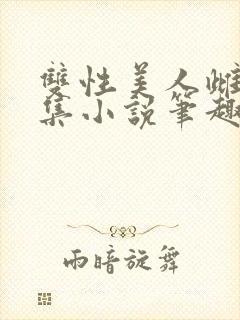 雙性美人雌
集小說筆趣
雨暗旋舞